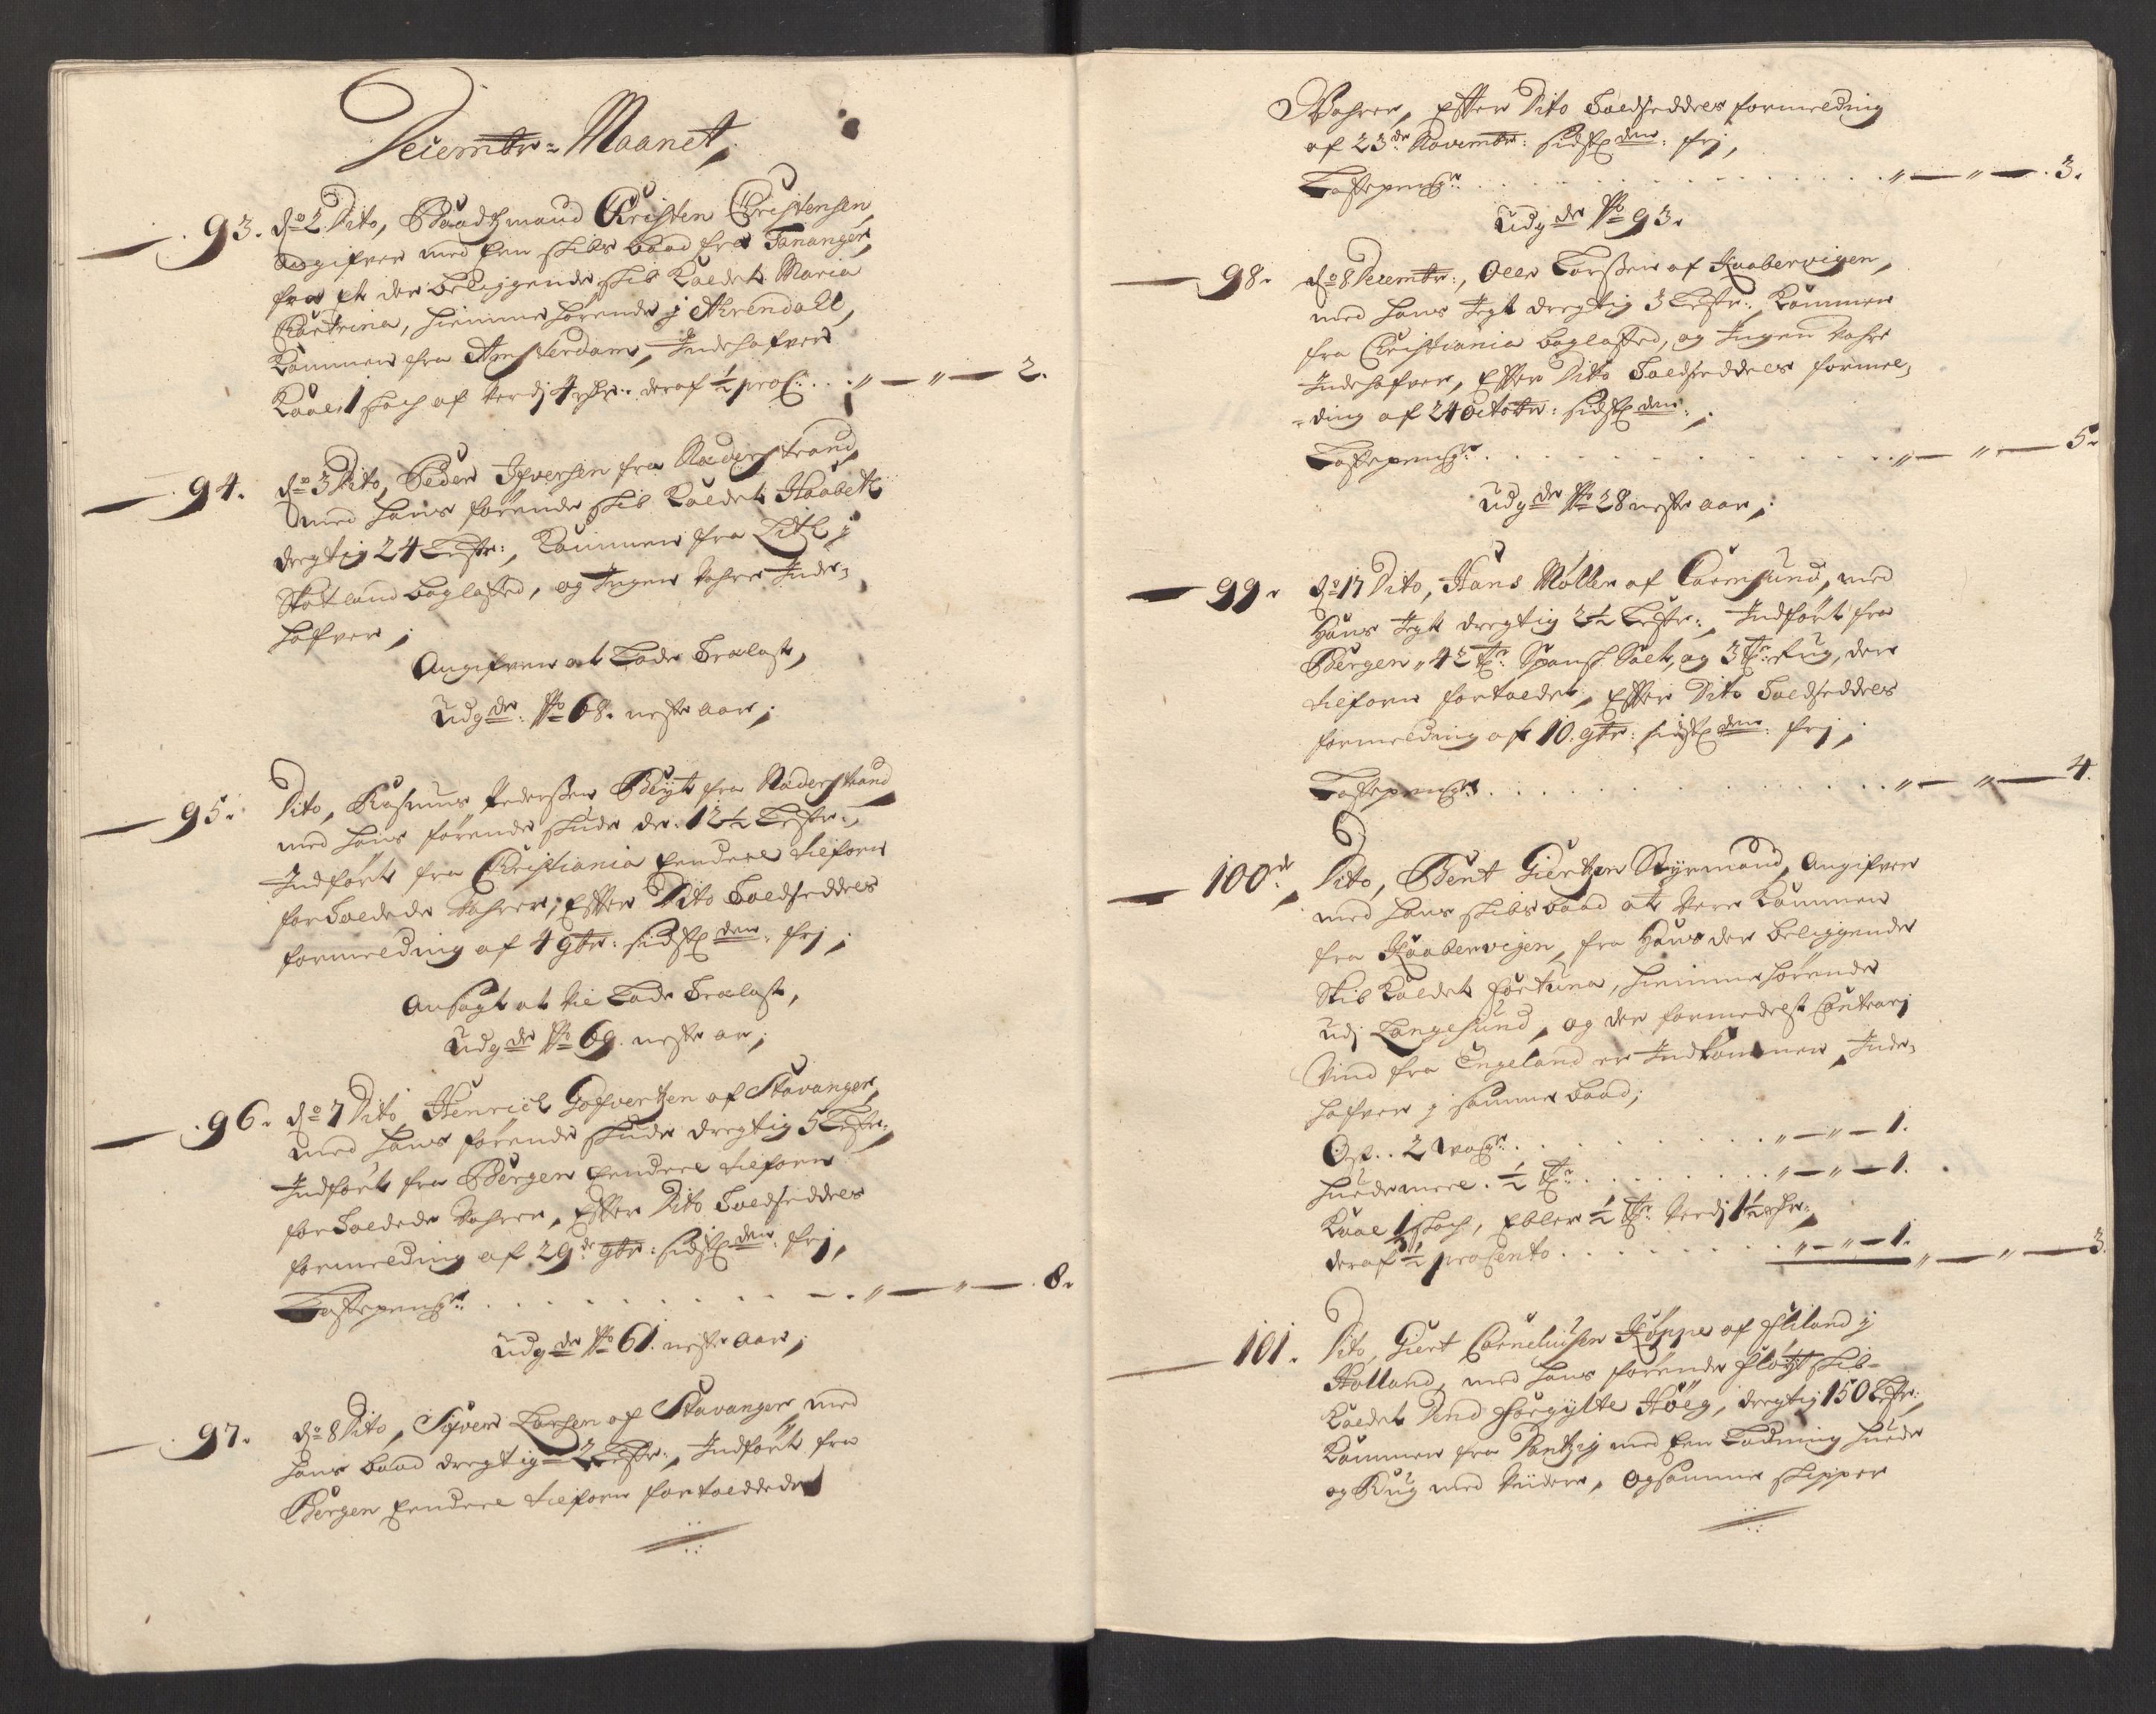 Decembr: Maanet,
93. dn 2 Dito, Baadtzmand Christen Christensen,
angifver med sin skibs baad fra Tananger,
fra et der beliggende skib kaldet Maria
Chatrina, hiemmehørende j Arrendall,
kommen fra Amsterdam, Indehafver
Kaal 1 skoch af verdj 4 rdr: deraf ½ proC: . . „ — „ — 2.
94. dn 3 Dito, Peder Ifversen fra Naderstrand,
med hans førende skib kaldet Haabet
dregtig 24 Lester, kommen fra Lith j
Skotland baglasted, og Ingen Vahre Inde-
hafver;
Angifven at Lade Trælast,
Udg der No 68. neste aar;
95. Dito, Rasmus Pedersen Bøyt fra Naderstrand
med hans førende skude dr. 12½ Lester,
Indført fra Christiania Endeel tilforn
fortoldede Vahrer, Efter Dito Toldseddels
formelding af 4 9br: sidst den: frj;
Ansagt at vil Lade Trælast,
Udg der No 69. neste ar;
96. dn 7 Dito, Henrich Gofvertzen af Stavanger,
med hans førende skude dregtig 5 Lester,
Indført fra Bergen Endeel tilforn
fortoldede Vahrer, Efter Dito Toldseddels
formelding af 29de 9br: sidst den: frj,
Lastepenge . . . . . . „ — „ — 8.
Udg der No 61. neste aar;
97. dn 8 Dito, Sifver Larsen af Stavanger med
hans baad dregtig 2 Lester, Indført fra
Bergen Endeel tilforn fortoldede
Vahrer, Efter Dito Toldseddels formelding
af 23de Novembr: sidst den: frj,
Lastepenge . . . . . . „ — „ — 3.
Udg der No 93.
98. dn 8 Decembr:, Oele Larsen af Kaabervigen,
med hans Jegt dregtig 3 Lester, kommen
fra Christiania baglasted, og Ingen Vahre
Indehafver, Efter Dito Toldseddels formel-
ding af 24 Octobr: sidst den:,
Lastepenge . . . . . . „ — „ — 5.
Udg der No 28 neste aar;
99. dn 17 Dito, Hans Møller af Carmsund, med
Hans Jegt dregtig 2½ Lester, Indført fra
Bergen, 42 Tr: Spansk Salt, og 3 Tr: Rug, der
tilforn fortoldet, Efter Dito Toldseddels
formelding af 10. 9br: sidst den: frj;
Lastepenge . . . . . . „ — „ — 4.
100de Dito, Bent Giertzen Styrmand, Angifver
med hans skibsbaad at vere kommen
fra Kaabervigen, fra Hans der beliggende
Skib kaldet Fortuna, hiemmehørende
udj Langesund, og der formedelst Contrarj
Vind fra Engeland er Indkommen, Inde-
hafver j samme baad;
Ost . . 2 . . . . . . . „ — „ — 1.
Huedemeel . ½ Tr: . . . . . . „ — „ — 1.
Kaal 1 skoch, Ebler ½ Tr: Verdj 1½ rdr:
deraf ½ proCento . . . . . . „ — „ — 1. „ — „ — 3.
101. Dito, Giert Corneliusen Køppe af Flieland j
Holland, med hans førende Fløytskib
kaldet Dend Forgylte Høeg, dregtig 150 Lester,
kommen fra Dantzig med En Ladning huede
og Rug med videre, Og samme skipper